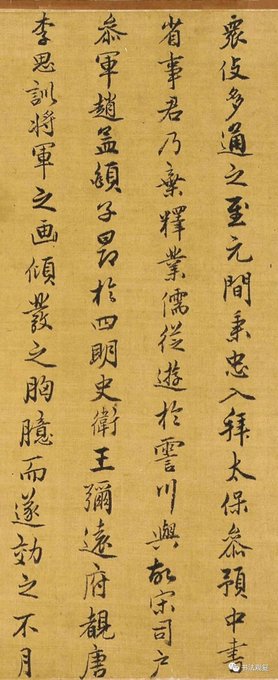 众伎多通之至元間秉忠入拜太保叅預中書
省事君乃棄釋業儒從遊於霅川與故宋司户
叅軍趙孟頫子昂於四明史衛王彌遠府覩唐
李思訓将軍之画傾發之胸臆而遂効之不月
书法观复